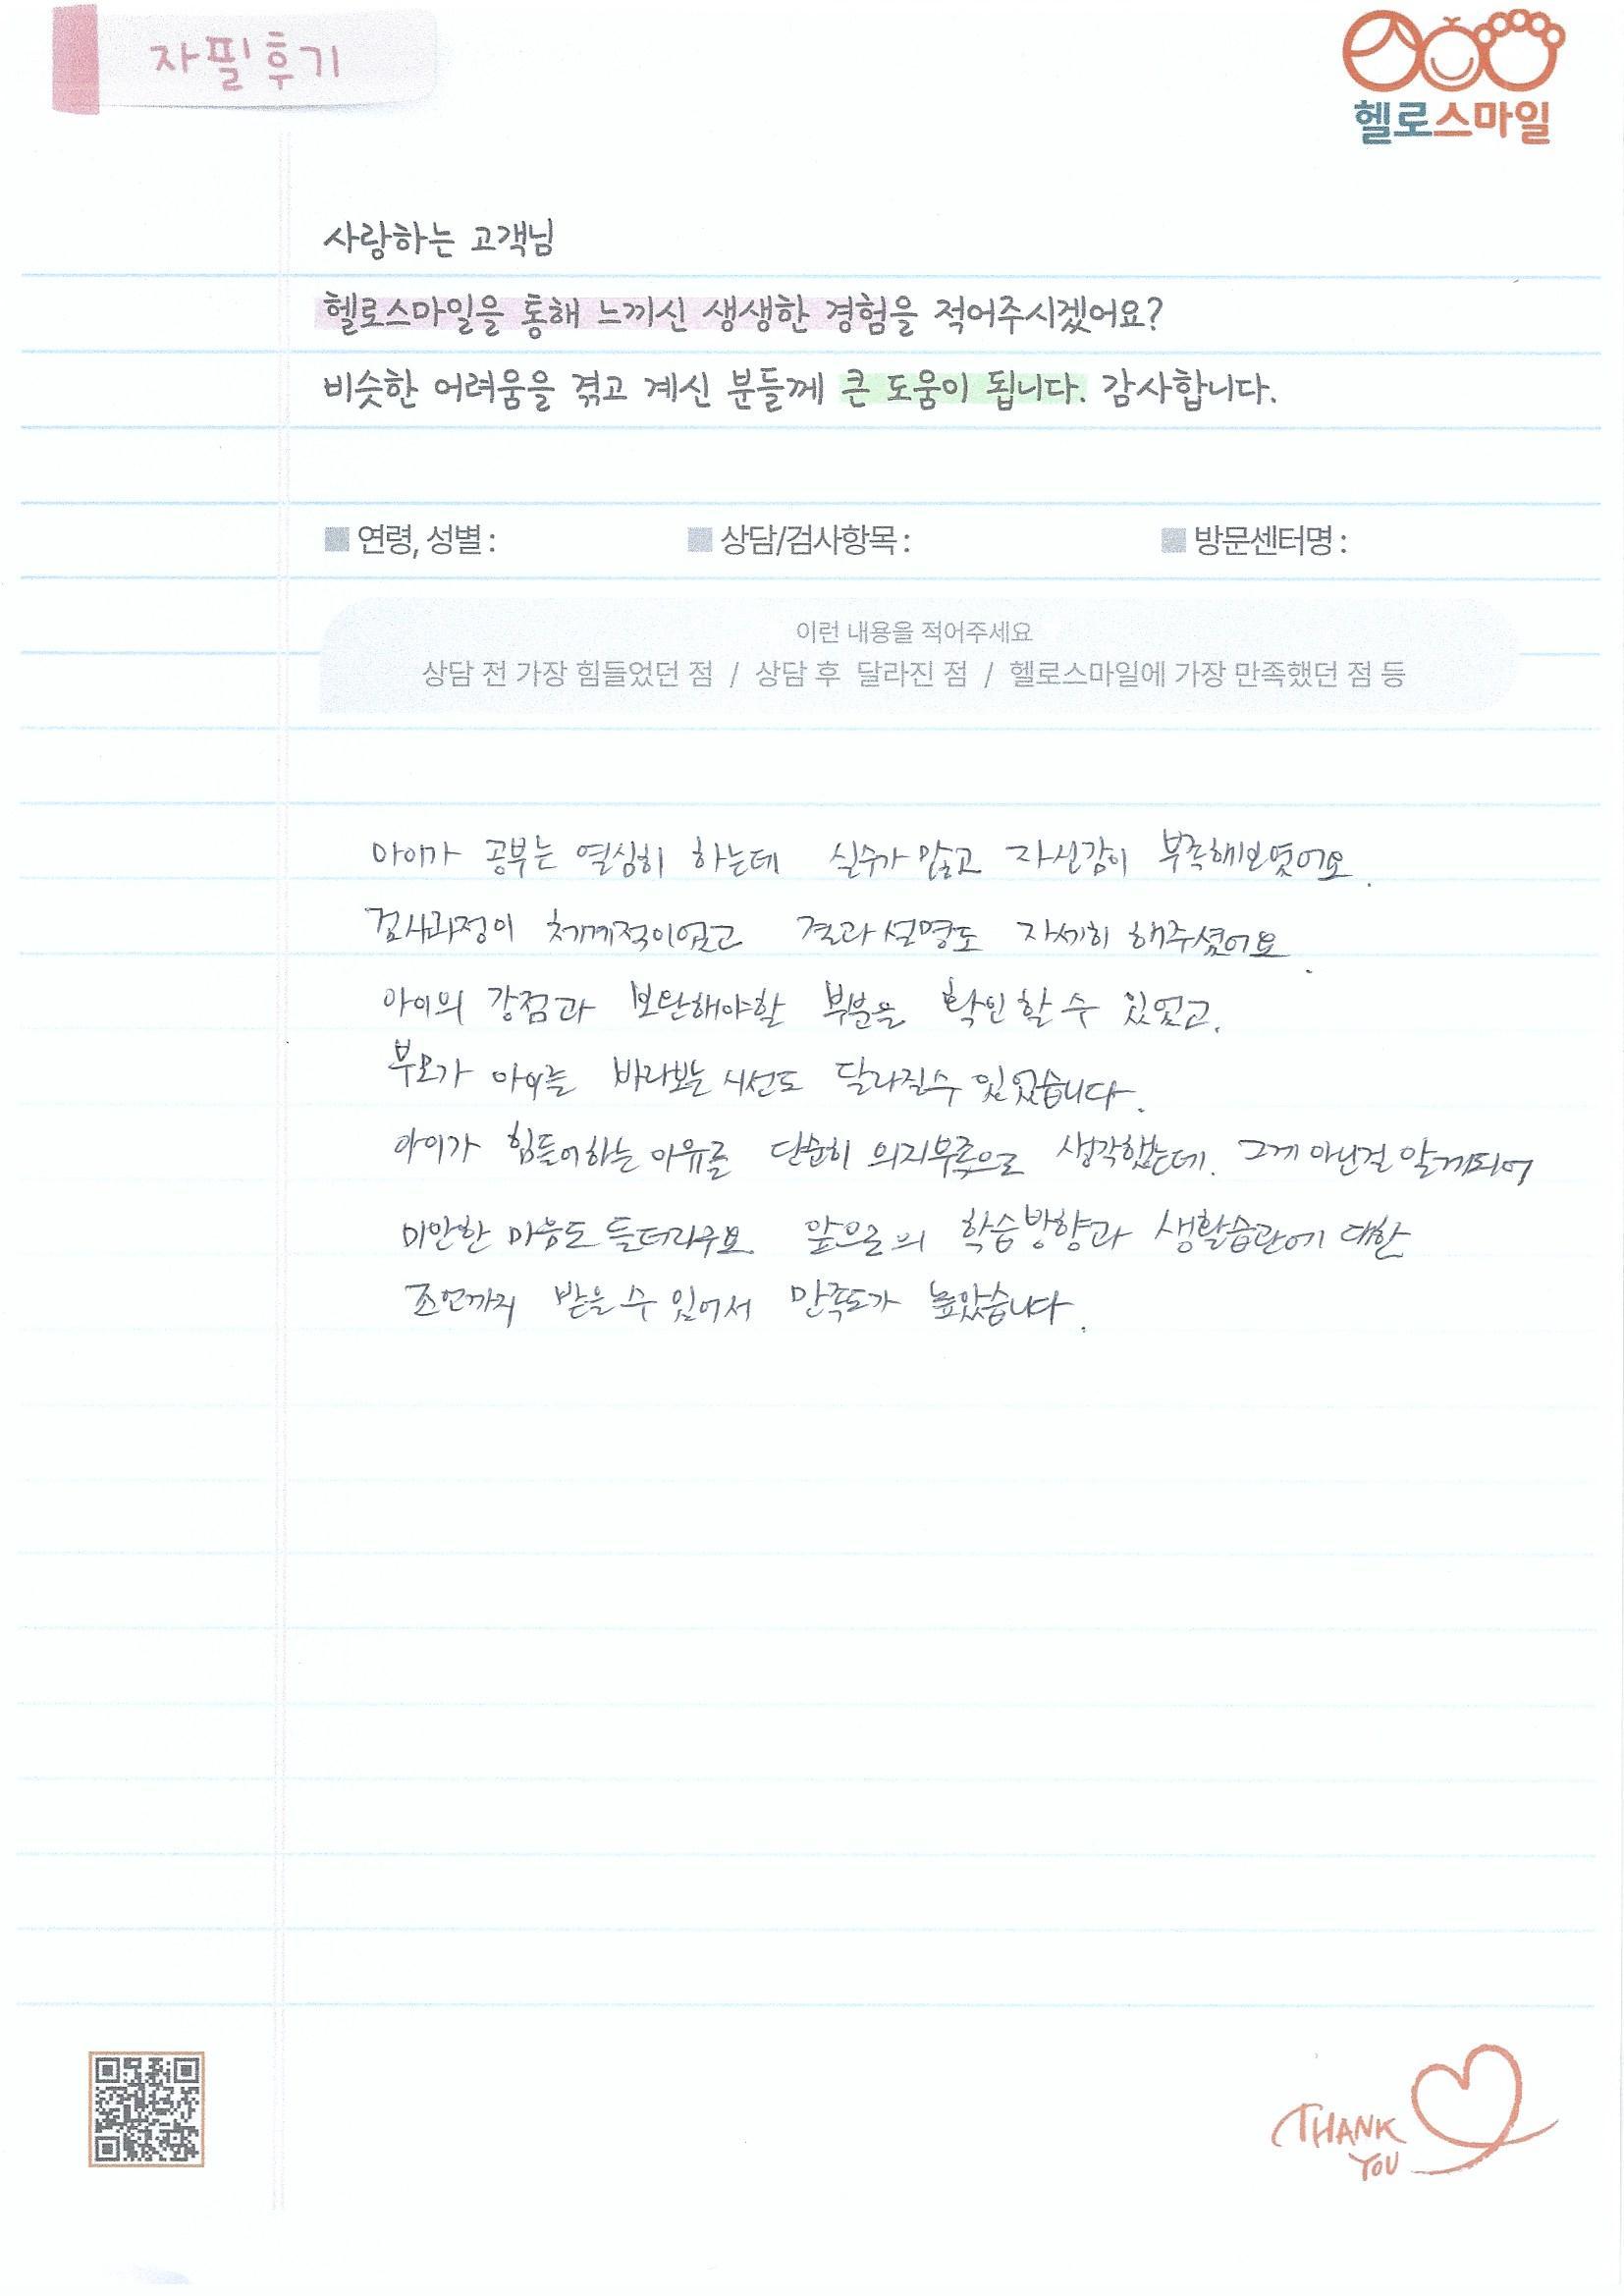 자필후기
헬로스마일
사랑하는 고객님
헬로스마일을 통해 느끼신 생생한 경험을 적어주시겠어요?
비슷한 어려움을 겪고 계신 분들께 큰 도움이 됩니다. 감사합니다.
연령, 성별 : 상담/검사항목 : 방문센터명 :
이런 내용을 적어주세요
상담 전 가장 힘들었던 점 / 상담 후 달라진 점 / 헬로스마일에 가장 만족했던 점 등
아이가 공부는 열심히 하는데 실수가 많고 자신감이 부족해보였어요.
검사과정이 체계적이었고 결과설명도 자세히 해주셨어요.
아이의 강점과 보완해야할 부분을 확인할 수 있었고,
부모가 아이를 바라보는 시선도 달라질수 있었습니다.
아이가 힘들어하는 이유를 단순히 의지부족으로 생각했는데, 그게 아닌걸 알게되어
미안한 마음도 들더라구요. 앞으로의 학습방향과 생활습관에 대한
조언까지 받을 수 있어서 만족도가 높았습니다.
THANK
YOU